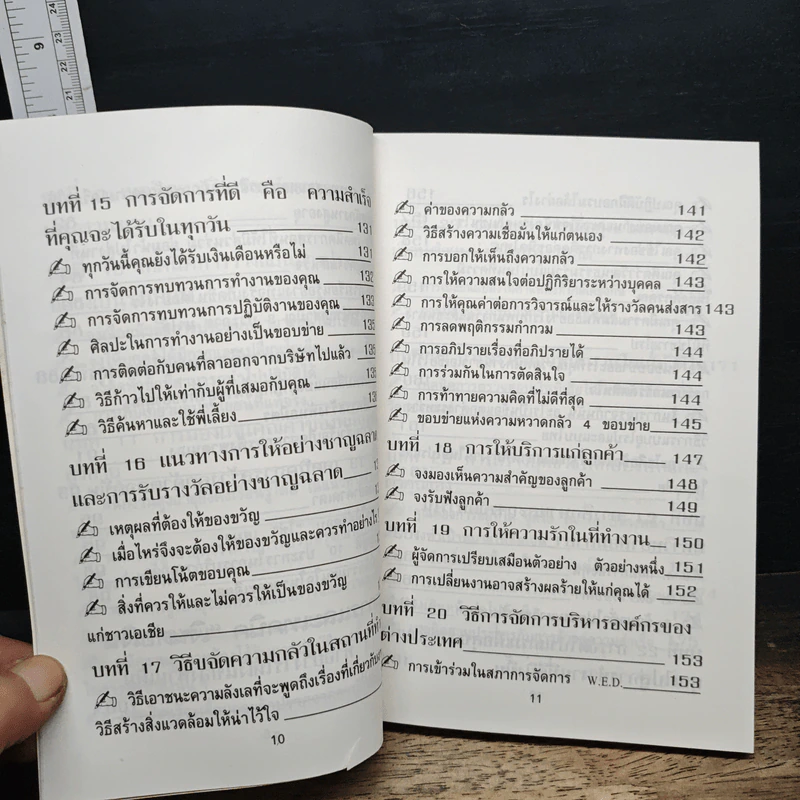 9
24
23
22
21
บทที่ 15 การจัดการที่ดี คือ ความสำเร็จ
ที่คุณจะได้รับในทุกวัน 131
ทุกวันนี้คุณยังได้รับเงินเดือนหรือไม่ 131
การจัดการทบทวนการทำงานของคุณ 132
การจัดการทบทวนการปฏิบัติงานของคุณ 133
ศิลปะในการทำงานอย่างเป็นขอบข่าย 135
การติดต่อกับคนที่ลาออกจากบริษัทไปแล้ว 135
วิธีก้าวไปให้เท่ากับผู้ที่เสมอกับคุณ
วิธีค้นหาและใช้พี่เลี้ยง
บทที่ 16 แนวทางการให้อย่างชาญฉลาด
และการรับรางวัลอย่างชาญฉลาด
เหตุผลที่ต้องให้ของขวัญ
เมื่อไหร่จึงจะต้องให้ของขวัญและควรทำอย่างไร
การเขียนโน้ตขอบคุณ
สิ่งที่ควรให้และไม่ควรให้เป็นของขวัญ
แก่ชาวเอเชีย
บทที่ 17 วิธีขจัดความกลัวในสถานที่
วิธีเอาชนะความลังเลที่จะพูดถึงเรื่องที่เกี่ยวกับ
วิธีสร้างสิ่งแวดล้อมให้น่าไว้ใจ
10
ค่าของความกลัว 141
วิธีสร้างความเชื่อมั่นให้แก่ตนเอง 142
การบอกให้เห็นถึงความกลัว 142
การให้ความสนใจต่อปฏิกิริยาระหว่างบุคคล 143
การให้คุณค่าต่อการวิจารณ์และให้รางวัลคนส่งสาร 143
การลดพฤติกรรมกำกวม 143
การอภิปรายเรื่องที่อภิปรายได้ 144
การร่วมกันในการตัดสินใจ 144
การท้าทายความคิดที่ไม่ดีที่สุด 144
ขอบข่ายแห่งความหวาดกลัว 4 ขอบข่าย 145
บทที่ 18 การให้บริการแก่ลูกค้า 147
จงมองเห็นความสำคัญของลูกค้า 148
จงรับฟังลูกค้า 149
บทที่ 19 การให้ความรักในที่ทำงาน 150
ผู้จัดการเปรียบเสมือนตัวอย่าง ตัวอย่างหนึ่ง 151
การเปลี่ยนงานอาจสร้างผลร้ายให้แก่คุณได้ 152
บทที่ 20 วิธีการจัดการบริหารองค์กรของ
ต่างประเทศ 153
การเข้าร่วมในสภาการจัดการ W.E.D. 153
11